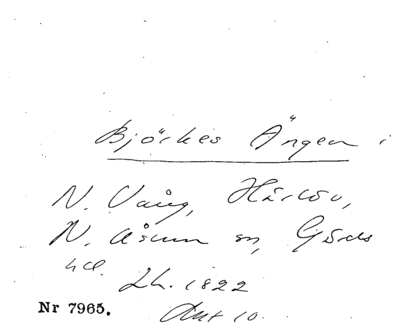 Björkes Ängen i
N. Vång, Härlöv,
N. Åsum sn, Gärds
hd. Lh. 1822
Akt 10.
Nr 7965.